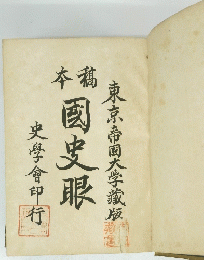 東京帝國大学藏版
稿本
國史眼
史學會印行